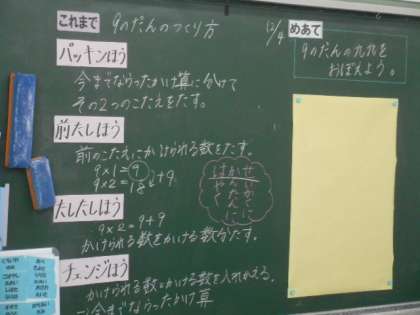 これまで
9のだんのつくり方
12/4
めあて
9のだんの九九を
おぼえよう。
パッキンほう
今までならったかけ算に分けて
その2つのこたえをたす。
前たしほう
前のこたえにかけられる数をたす。
9×1=9
9×2=18
+9
はかせ
たしたしほう
9×2=9+9
かけられる数をかける数分たす。
チェンジほう
かけられる数とかける数を入れかえる。
今までならったかけ算